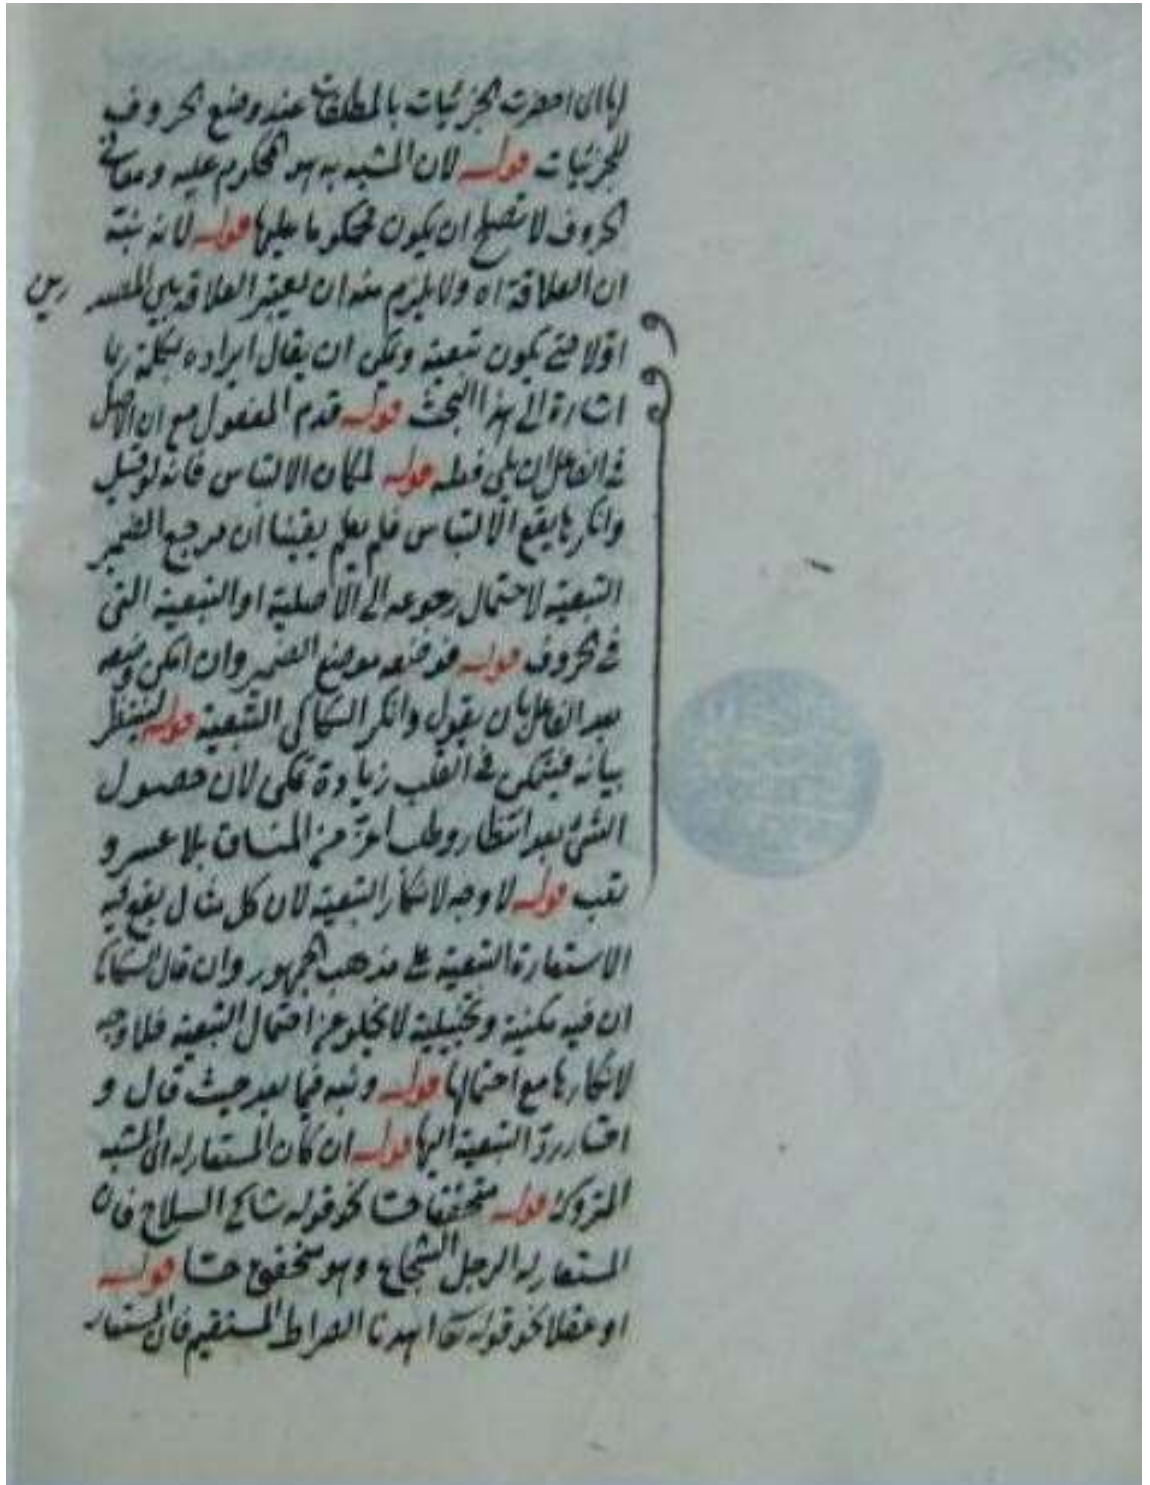 احضرت الجزئيات بالمطلقات عند وضع الحروف
للجزئيات قوله لان المشبه به هو المحكوم عليه ومعانى
الحروف لا تصلح ان يكون محكوما عليها قوله لانه نبّه
ان العلاقة اه ولا يلزم منه ان يعتبر العلاقة بين
اولا حتى يكون تبعية ويمكن ان يقال ايراده بكلمة ربما
اشارة الى هذا البحث قوله قدم المفعول مع ان الاصل
فى الفاعل ان يلى فعله قوله لمكان الالتباس فانه لو قيل
وانكرها يقع الالتباس فلم يعلم يقينا ان مرجع الضمير
التبعية لاحتمال رجوعه الى الاصلية او التبعية التى
فى الحروف قوله فوضعه موضع الضمير وان امكن وضعه
بعد الفاعل بان يقول وانكر السكاكى التبعية قوله لينتظر
بيانه فيتمكن فى القلب زيادة تمكن لان حصول
الشئ بعد انتظار وطلب اعز من المنساق بلا عسر و
تعب قوله لا وجه لانكار التبعية لان كل مثال يقع فيه
الاستعارة التبعية على مذهب الجمهور وان قال السكاكى
ان فيه مكنية وتخييلية لا يخلو عن احتمال التبعية فلا وجه
لانكارها مع احتمالها قوله ونبه فيما بعد حيث قال و
اختار رد التبعية اليها قوله ان كان المستعار له اى المشبه
المتروك قوله متحققا حسا نحو قوله شاكى السلاح فان
المستعار له الرجل الشجاع وهو متحقق حسا قوله
او عقلا نحو قوله تعا اهدنا الصراط المستقيم فان المستعار